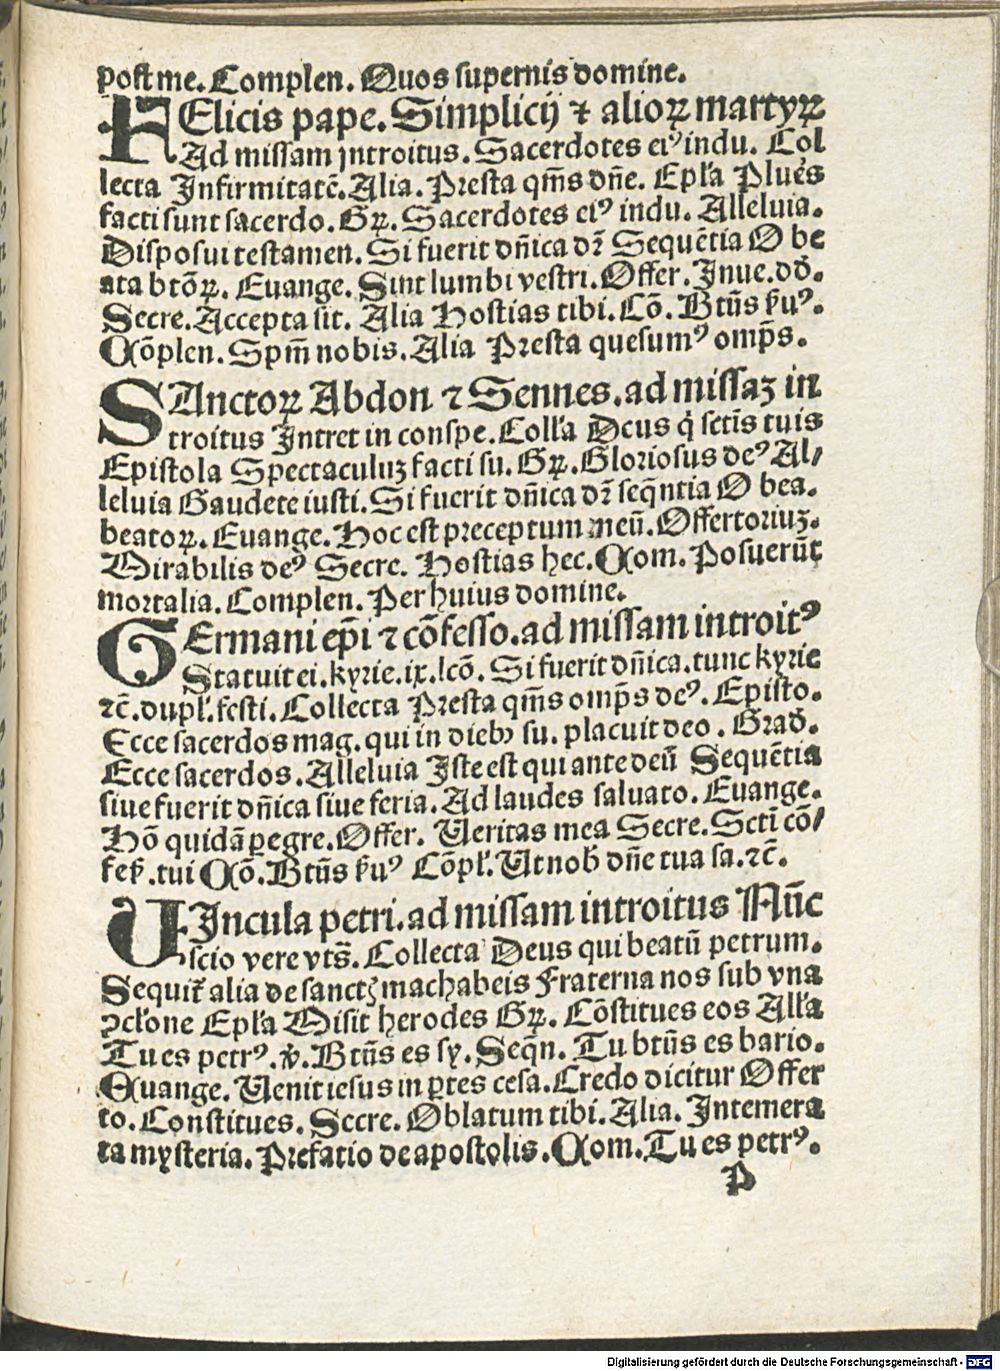 post me. Complen. Quos supernis domine.
FElicis pape. Simplicij ⁊ alioꝝ martyꝝ
Ad missam introitus. Sacerdotes eiꝰ indu. Col
lecta Infirmitatē. Alia. Presta qm̄s dn̄e. Epl'a Plures
facti sunt sacerdo. Gꝝ. Sacerdotes eiꝰ indu. Alleluia.
Disposui testamen. Si fuerit dn̄ica dr̄ Sequētia O be
ata btōꝝ. Euange. Sint lumbi vestri. Offer. Inue. dd̄.
Secre. Accepta sit. Alia Hostias tibi. Cō. Btūs ẜuꝰ.
Cōplen. Spm̄ nobis. Alia Presta quesumꝰ omp̄s.
SAnctoꝝ Abdon ⁊ Sennes. ad missaꝫ in
troitus Intret in conspe. Coll'a Deus q̇ sctīs tuis
Epistola Spectaculuꝫ facti su. Gꝝ. Gloriosus deꝰ Al⸗
leluia Gaudete iusti. Si fuerit dn̄ica dr̄ seq̄ntia O bea.
beatoꝝ. Euange. Hoc est preceptum meū. Offertoriuꝫ.
Mirabilis deꝰ Secre. Hostias hec. Com. Posuerūt
mortalia. Complen. Per huius domine.
GErmani ep̄i ⁊ cōfesso. ad missam introitꝰ
Statuit ei. kyrie. ix. lcō. Si fuerit dn̄ica. tunc kyrie
⁊c̄. dupl'. festi. Collecta Presta qm̄s omp̄s deꝰ. Episto.
Ecce sacerdos mag. qui in dieb⁹ su. placuit deo. Grad̄.
Ecce sacerdos. Alleluia Iste est qui ante deū Sequētia
siue fuerit dn̄ica siue feria. Ad laudes saluato. Euange.
Hō quidā ꝑegre. Offer. Ueritas mea Secre. Sctī cō⸗
feẜ. tui Cō. Btūs ẜuꝰ Cōpl'. Ut nob̄ dn̄e tua sa. ⁊c̄.
UIncula petri. ad missam introitus Nūc
scio vere vts̄. Collecta Deus qui beatū petrum.
Sequit᷑ alia de sanctꝭ machabeis Fraterna nos sub vna
ꝯcl'one Epl'a Misit herodes Gꝝ. Cōstitues eos All'a
Tu es petrꝰ. ℣. Btūs es sy. Seqn̄. Tu btūs es bario.
Euange. Uenit iesus in ꝑtes cesa. Credo dicitur Offer
to. Constitues. Secre. Oblatum tibi. Alia. Intemera
ta mysteria. Prefatio de apostolis. Com. Tu es petrꝰ.
P
Digitalisierung gefördert durch die Deutsche Forschungsgemeinschaft - DFG